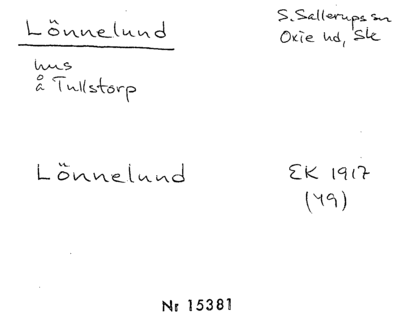 Lönnelund
S. Sallerups sn
Oxie hd, Sk
hus
å Tullstorp
Lönnelund
EK 1917
(49)
Nr 15381